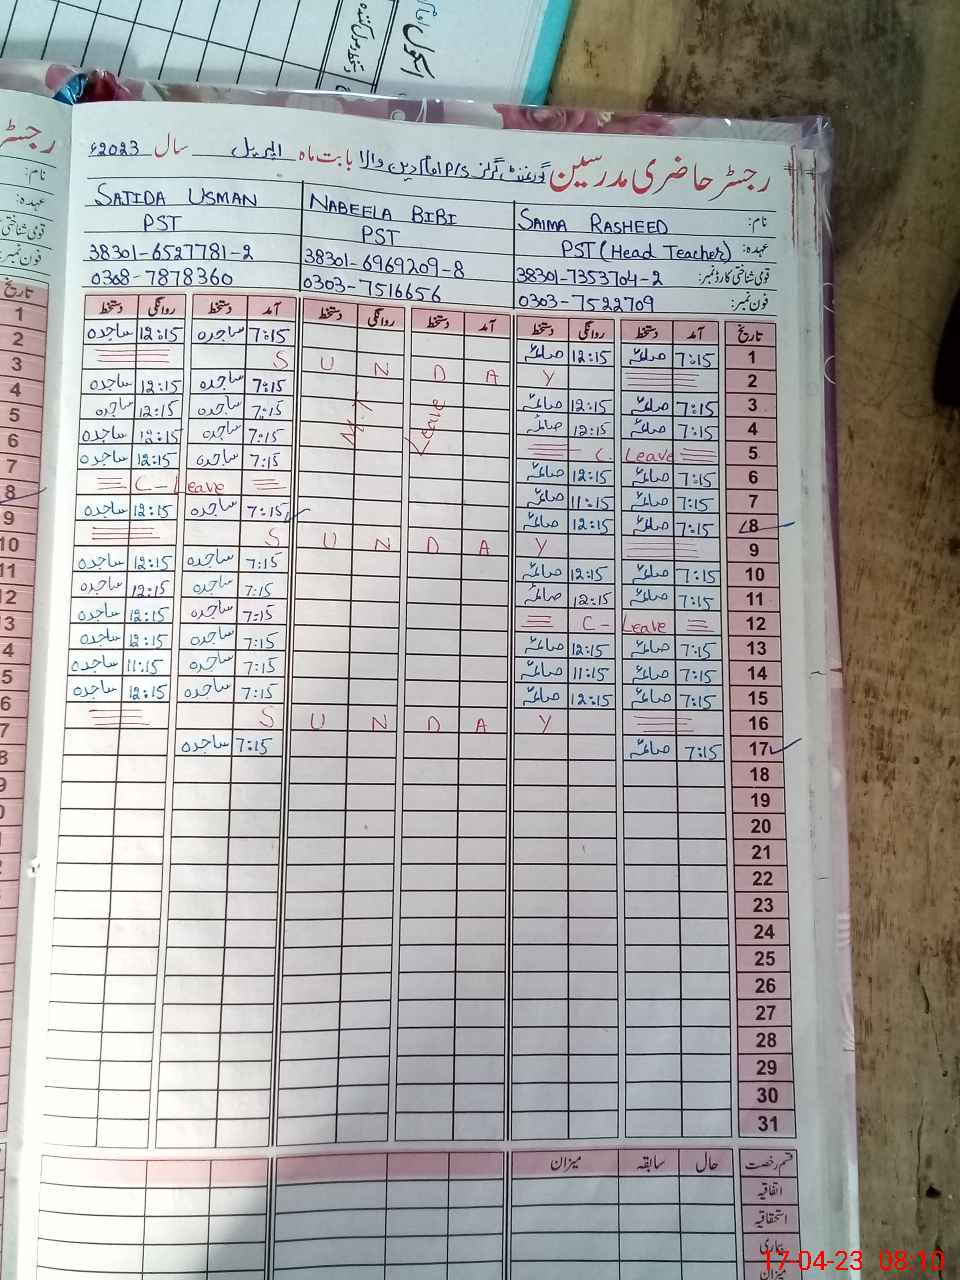 رجسٹر حاضری مدرسین گورنمنٹ گرلز P/S امام دین والا بابت ماہ اپریل سال 2023ء
نام: SAIMA RASHEED NABEELA BIBI SAJIDA USMAN
عہدہ: PST (Head Teacher) PST PST
قومی شناختی کارڈ نمبر: 38301-7353704-2 38301-6969209-8 38301-6527781-2
فون نمبر: 0303-7522709 0303-7516656 0308-7878360
تاریخ آمد دستخط روانگی دستخط آمد دستخط روانگی دستخط آمد دستخط روانگی دستخط
1 7:15 صائمہ 12:15 صائمہ 7:15 ساجدہ 12:15 ساجدہ
2 S U N D A Y
3 7:15 صائمہ 12:15 صائمہ 7:15 ساجدہ 12:15 ساجدہ
4 7:15 صائمہ 12:15 صائمہ 7:15 ساجدہ 12:15 ساجدہ
5 C. Leave 7:15 ساجدہ 12:15 ساجدہ
6 7:15 صائمہ 12:15 صائمہ 7:15 ساجدہ 12:15 ساجدہ
7 7:15 صائمہ 11:15 صائمہ C - Leave
8 7:15 صائمہ 12:15 صائمہ 7:15 ساجدہ 12:15 ساجدہ
9 S U N D A Y
10 7:15 صائمہ 12:15 صائمہ 7:15 ساجدہ 12:15 ساجدہ
11 7:15 صائمہ 12:15 صائمہ 7:15 ساجدہ 12:15 ساجدہ
12 C - Leave 7:15 ساجدہ 12:15 ساجدہ
13 7:15 صائمہ 12:15 صائمہ 7:15 ساجدہ 12:15 ساجدہ
14 7:15 صائمہ 11:15 صائمہ 7:15 ساجدہ 11:15 ساجدہ
15 7:15 صائمہ 12:15 صائمہ 7:15 ساجدہ 12:15 ساجدہ
16 S U N D A Y
17 7:15 صائمہ 7:15 ساجدہ
18
19
20
21
22
23
24
25
26
27
28
29
30
31
Leave
قسم رخصت حال سابقہ میزان
اتفاقیہ
استحقاقیہ
بیماری
میزان
17-04-23 08:10